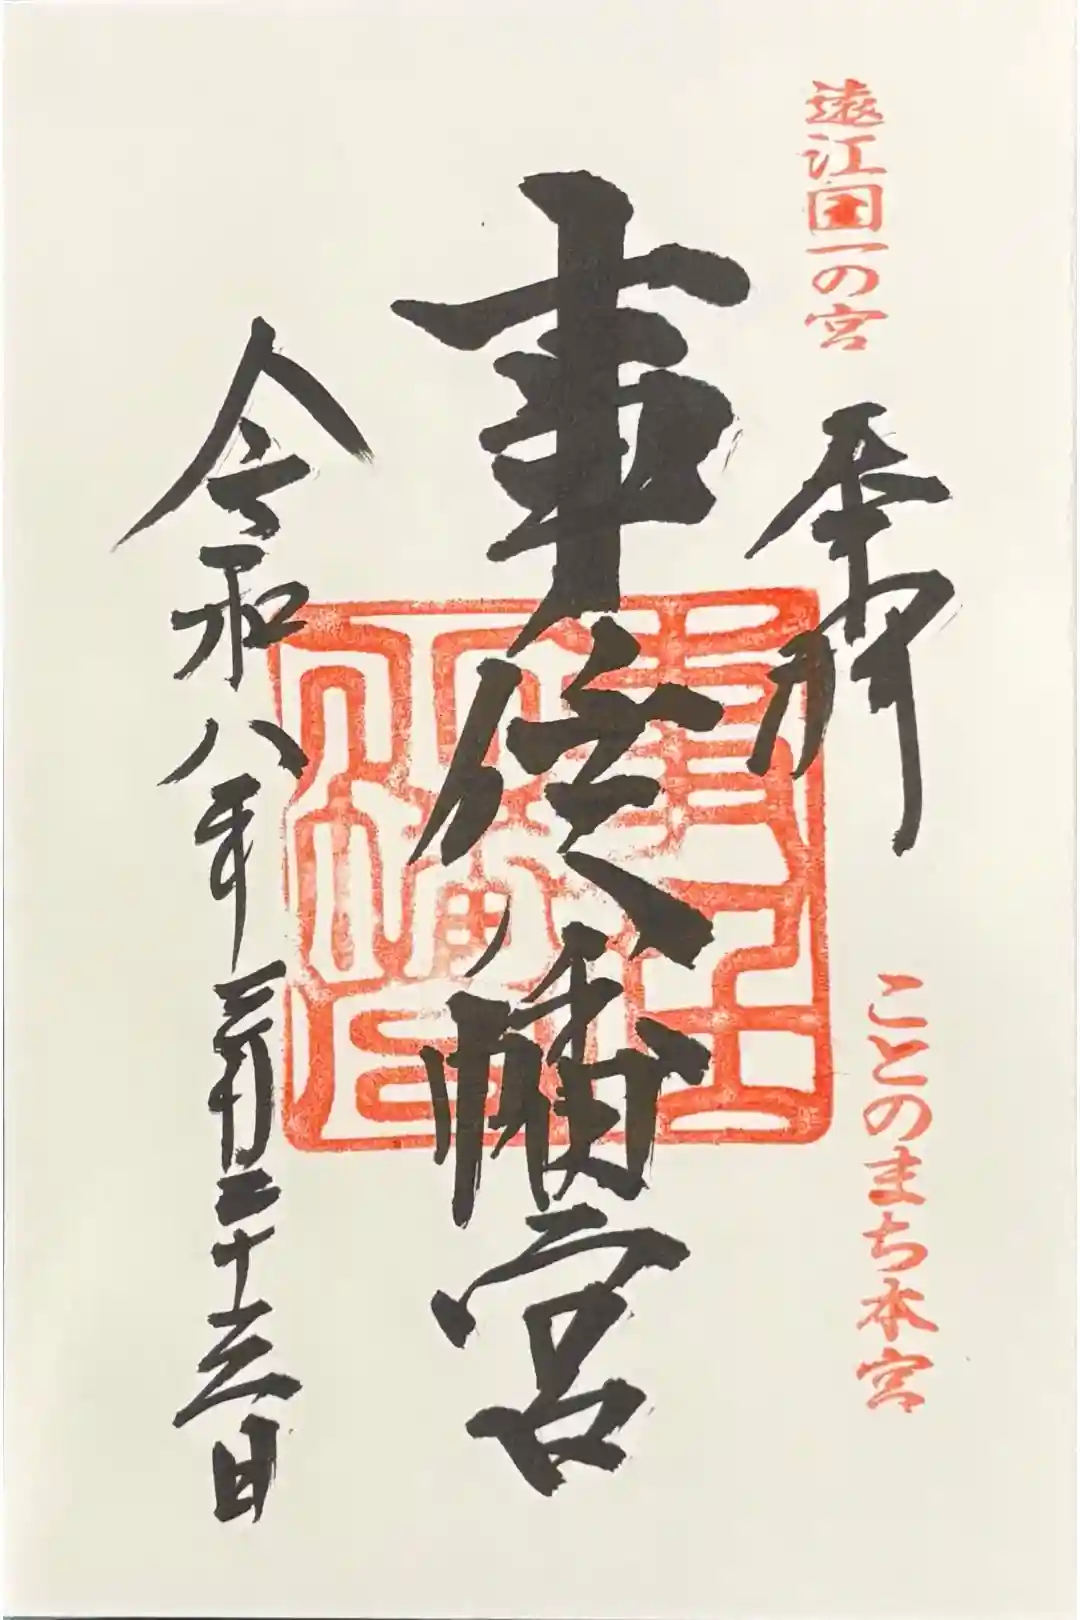 遠江国一の宮
奉拝
ことのまち本宮
事任八幡宮
令和八年三月二十三日